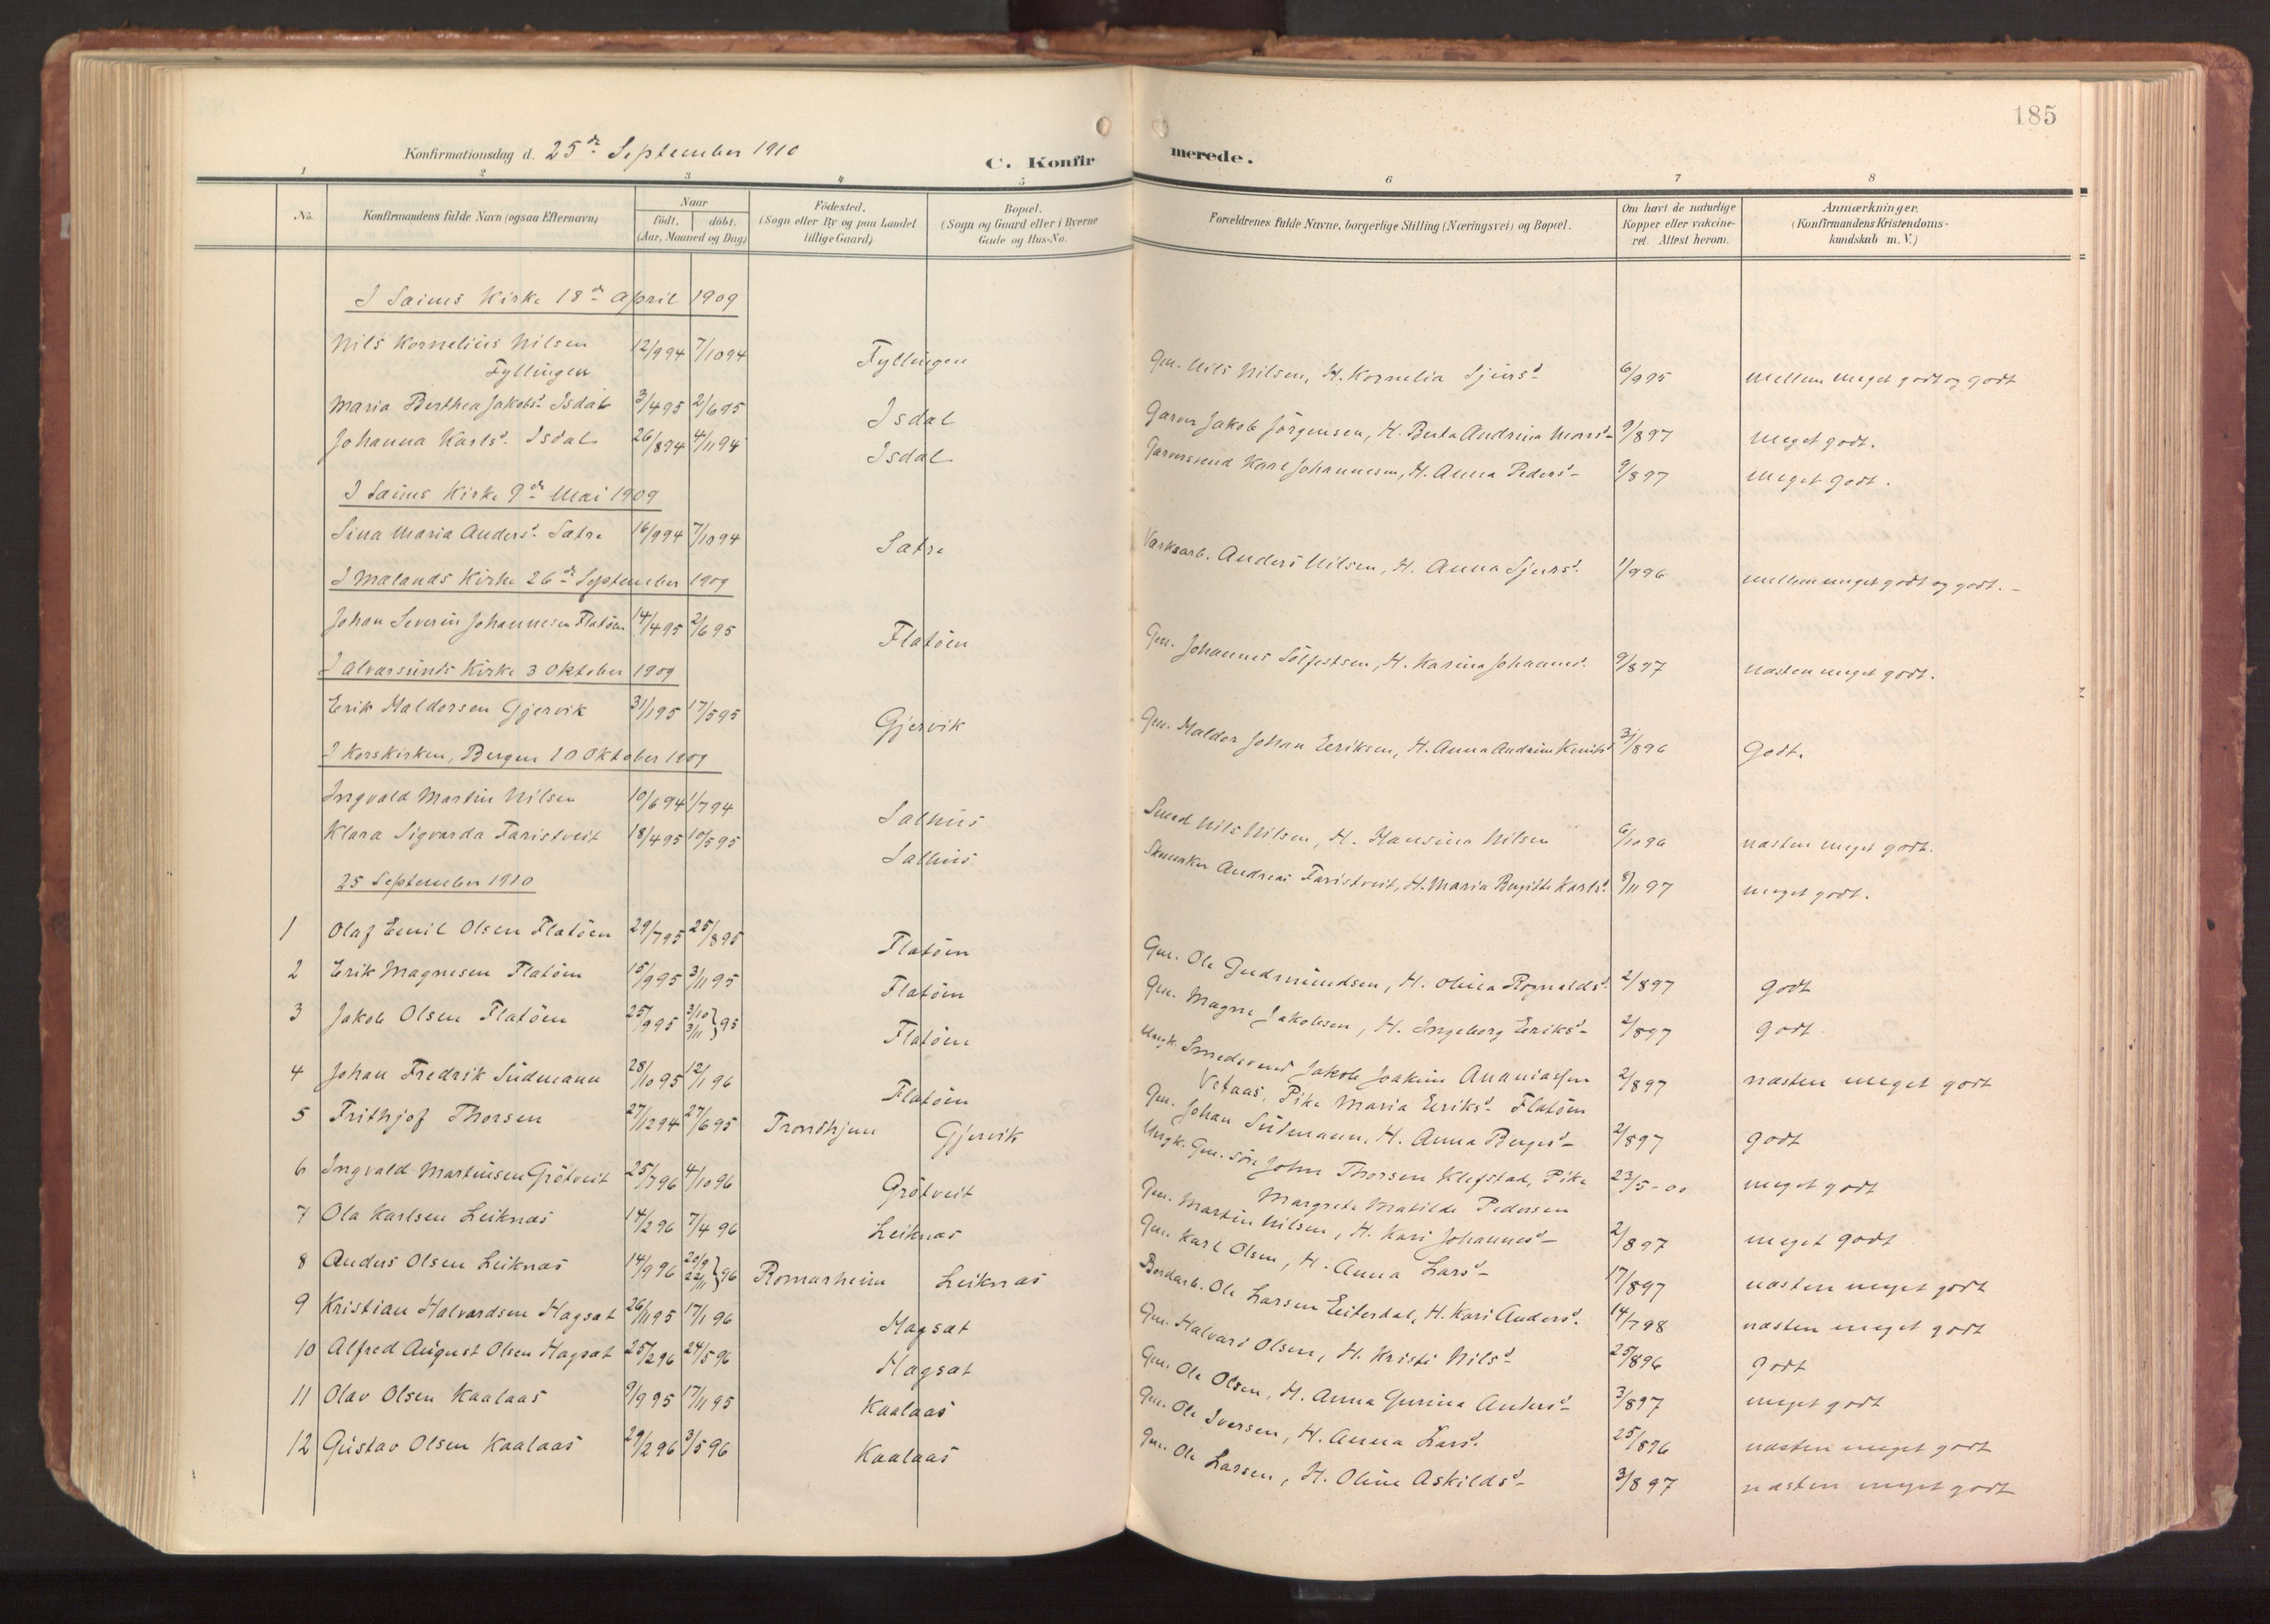 185
Konfirmationsdag d. 25de September 1910
C. Konfirmerede.
1 2 3 4 5 6 7 8
No. Konfirmandens fulde Navn (ogsaa Efternavn) Naar født. døbt. (Aar, Maaned og Dag) Fødested. (Sogn eller By og paa Landet tillige Gaard) Bopæl. (Sogn og Gaard eller i Byerne Gade og Hus-No. Forældrenes fulde Navne, borgerlige Stilling (Næringsvei) og Bopæl. Om havt de naturlige Kopper eller vakcineret. Attest herom. Anmærkninger. (Konfirmandens Kristendomskundskab m. V.)
I Saims Kirke 18de April 1909
Nils Kornelius Nilsen Fyllingen 12/9 94 7/10 94 Fyllingen Gm. Nils Nilsen, H. Kornelia Sjursd. 6/9 95 mellem meget godt og godt
Maria Berthea Jakobsd. Isdal 3/4 95 2/6 95 Isdal Garver Jakob Jörgensen, H. Berta Andrina Monsd. 9/8 97 meget godt.
Johanna Karlsd. Isdal 26/8 94 4/11 94 Isdal Garversvend Karl Johannesen, H. Anna Pedersd. 9/8 97 meget godt.
I Saims Kirke 9de Mai 1909
Sina Maria Andersd. Sætre 16/9 94 7/10 94 Sætre Værksarb. Anders Nilsen, H. Anna Sjursd. 1/9 96 mellem meget godt og godt.
I Mælands Kirke 26de September 1909
Johan Severin Johannesen Flatöen 14/4 95 2/6 95 Flatöen Gm. Johannes Sölfestsen, H. Karina Johannesd. 9/8 97 næsten meget godt.
I Alversunds Kirke 3 Oktober 1909
Erik Haldorsen Gjervik 31/1 95 17/5 95 Gjervik Gm. Haldor Johan Eriksen, H. Anna Andrina 31/8 96 Godt.
I Korskirken, Bergen 10 Oktober 1909
Ingvald Martin Nilsen 10/6 94 1/7 94 Salhus Smed Nils Nilsen, H. Hansina Nilsen 6/10 96 næsten meget godt.
Klara Sigvarda Faristveit 18/4 95 10/5 95 Salhus Skomaker Andreas Faristveit, H. Maria Birgitte Karlsd. 8/11 97 meget godt.
25 September 1910
1 Olaf Emil Olsen Flatöen 29/7 95 25/8 95 Flatöen Gm. Ole Gudmundsen, H. Olina Rognaldsd. 2/8 97 godt
2 Erik Magnesen Flatöen 15/9 95 3/11 95 Flatöen Gm. Magne Jakobsen, H. Ingeborg Eriksd. 2/8 97 godt
3 Jakob Olsen Flatöen 25/9 95 3/10 3/11 } 95 Flatöen Ungk. Smedsvend Jakob Joakim Ananiassen Vetaas, Pike Maria Eriksd. Flatöen 2/8 97 næsten meget godt
4 Johan Fredrik Südmann 28/10 95 12/1 96 Flatöen Gm. Johan Südmann, H. Anna Bergesd. 2/8 97 godt
5 Frithjof Thorsen 27/12 94 27/6 95 Trondhjem Gjervik Ungk. Gm. søn John Thorsen Klefstad, Pike Margrete Matilde Pedersen 23/5-00 meget godt
6 Ingvald Martinsen Grötveit 25/7 96 4/10 96 Grötveit Gm. Martin Nilsen, H. Kari Johannesd. 2/8 97 meget godt
7 Ola Karlsen Leiknæs 14/2 96 7/4 96 Leiknæs Gm. Karl Olsen, H. Anna Larsd. 17/8 97 næsten meget godt
8 Anders Olsen Leiknæs 14/9 96 20/9 22/11 } 96 Romarheim Leiknæs Bordarb. Ole Larsen Eiterdal, H. Kari Andersd. 14/7 98 næsten meget godt
9 Kristian Halvardsen Hagsæt 26/11 95 17/1 96 Hagsæt Gm. Halvard Olsen, H. Kristi Nilsd. 25/8 96 godt
10 Alfred August Olsen Hagsæt 25/2 96 24/5 96 Hagsæt Gm. Ole Olsen, H. Anna Gurina Andersd. 3/8 97 meget godt
11 Olav Olsen Kaalaas 9/9 95 17/11 95 Kaalaas Gm. Ole Iversen, H. Anna Larsd. 25/8 96 næsten meget godt
12 Gustav Olsen Kaalaas 29/2 96 3/5 96 Kaalaas Gm. Ole Larsen, H. Oline Askildsd. 3/8 97 næsten meget godt